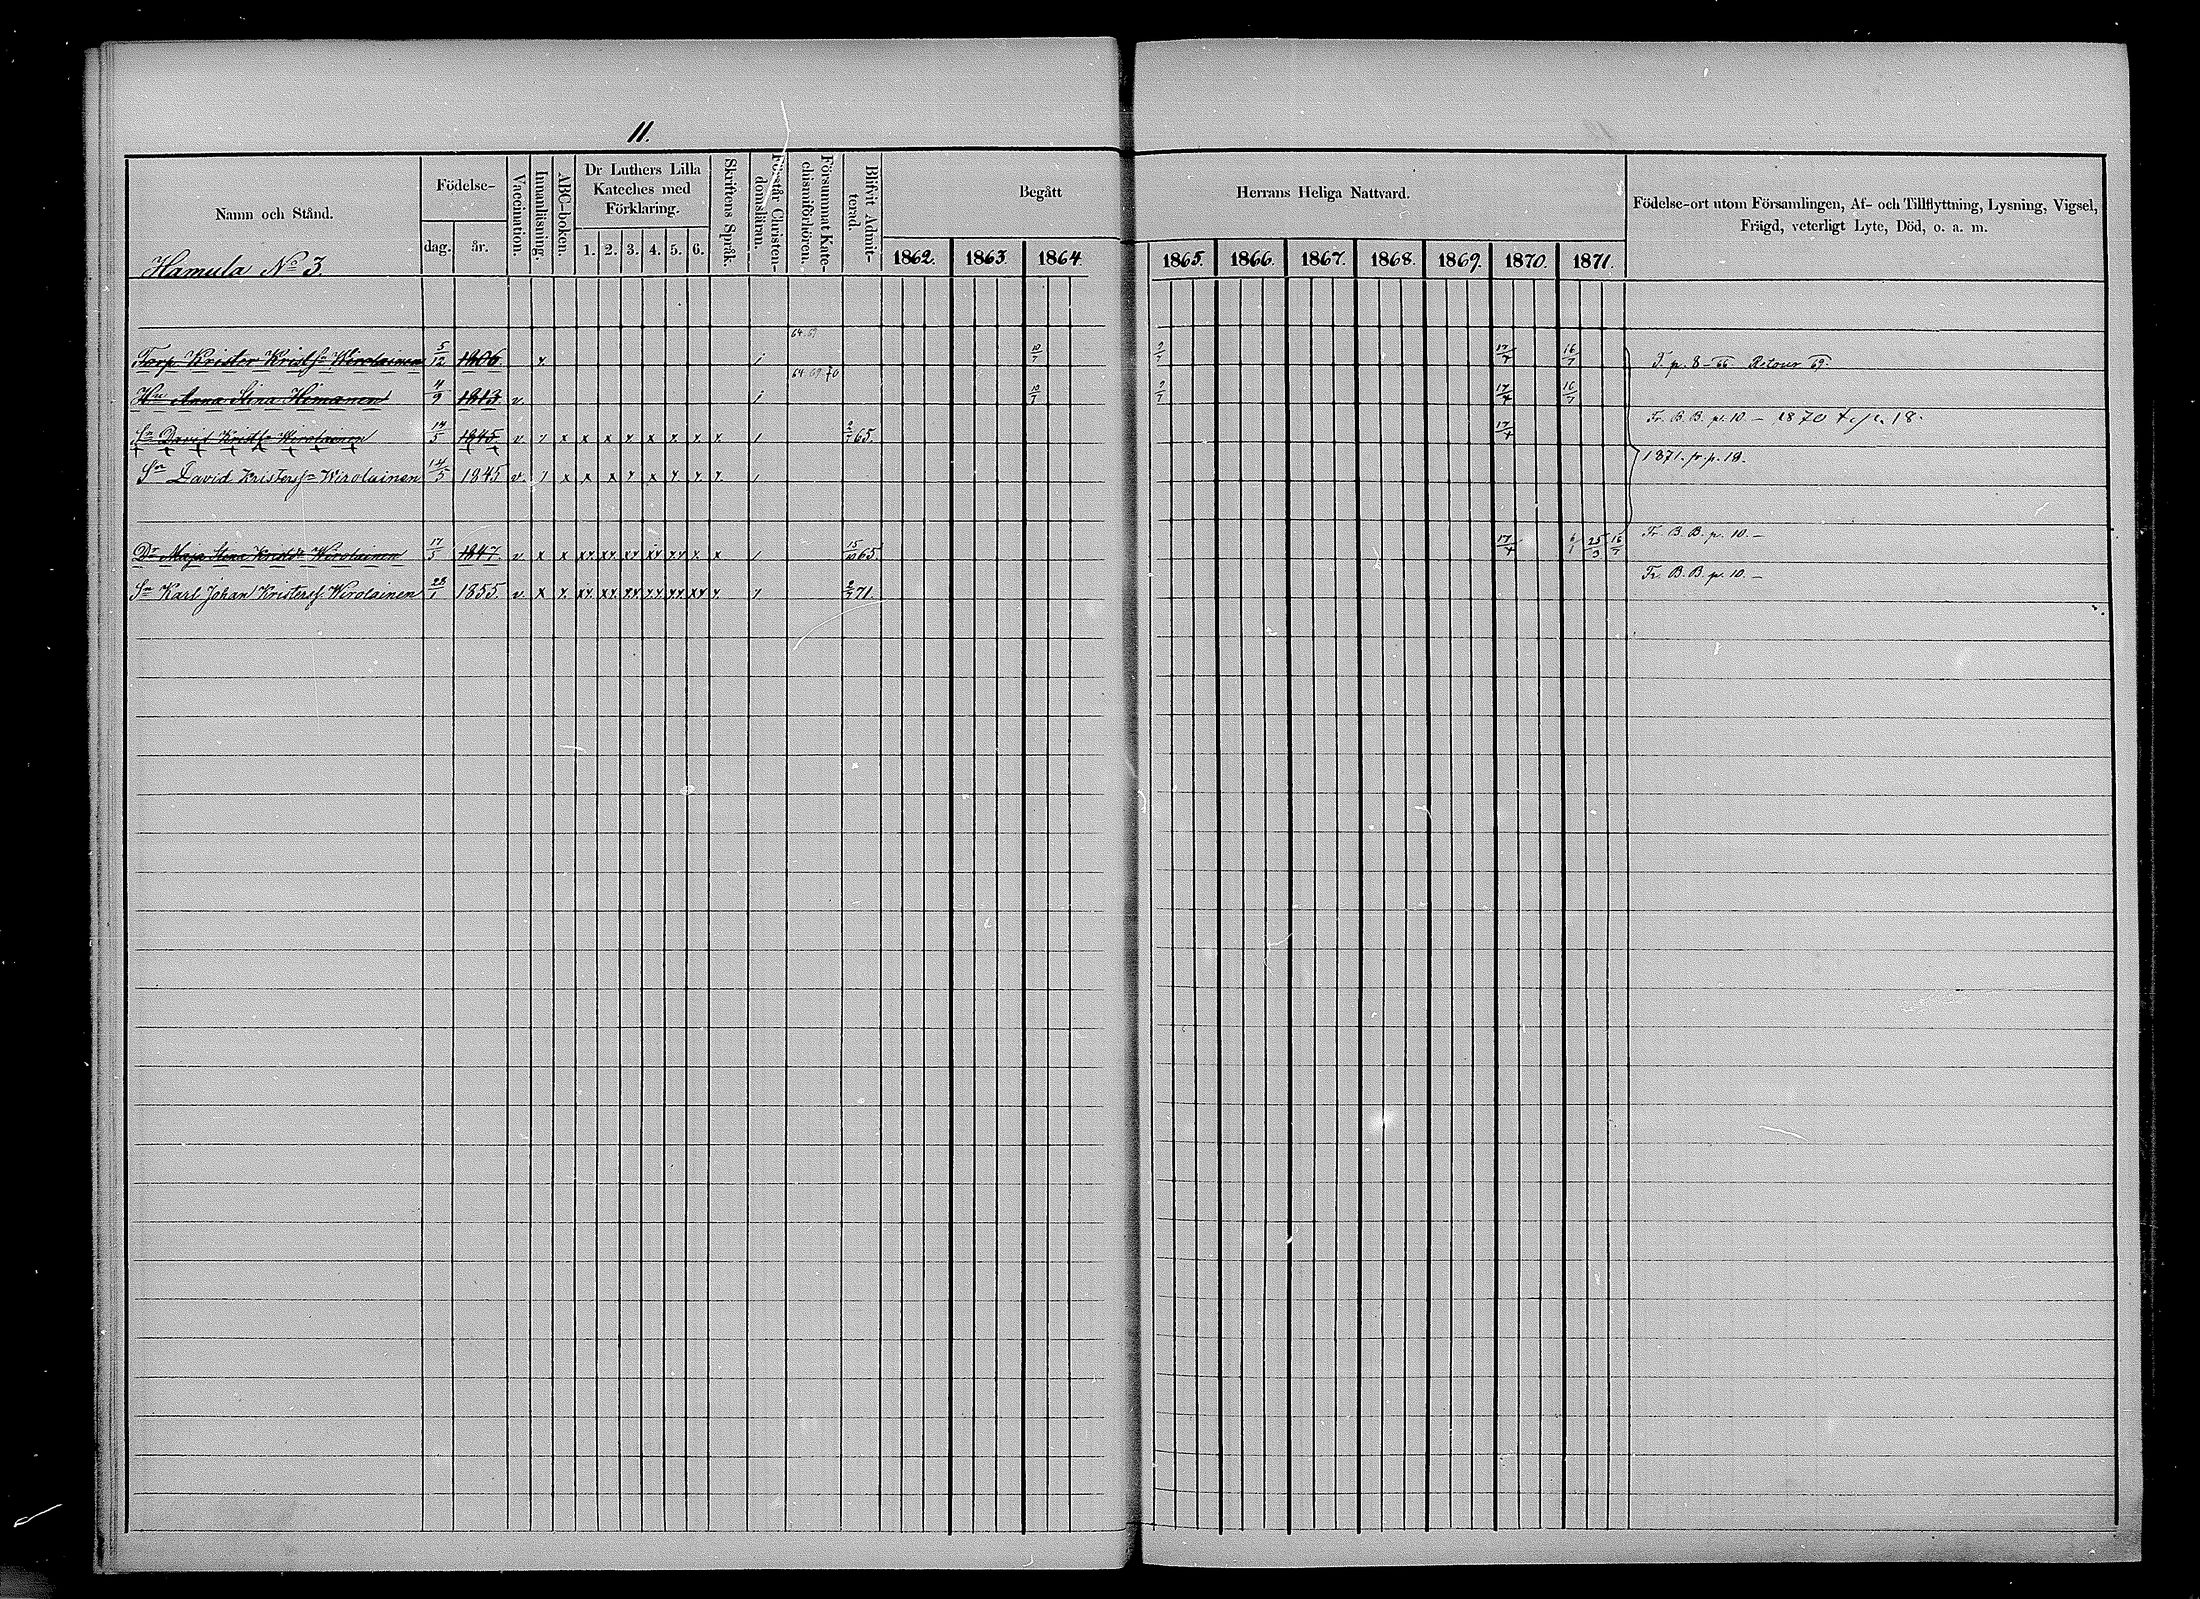 11.
Namn och Stånd.
Hamula No 3.
Födelse-
dag. år.
Vaccination.
Innanläsning.
ABC-boken.
Dr Luthers Lilla
Kateches med
Förklaring.
1. 2. 3. 4. 5. 6.
Skriftens Språk.
Förstår Christen-
domsläran.
Försummat Kate-
chismiförhören.
Blifvit Admit-
terad.
Begått
1862. 1863. 1864.
Herrans Heliga Nattvard.
1865. 1866. 1867. 1868. 1869. 1870. 1871.
Födelse-ort utom Församlingen, Af- och Tillflyttning, Lysning, Vigsel,
Frägd, veterligt Lyte, Död, o. a. m.
64.69
Torp. Krister Kristss Wirolainen 5/12 1806. x / 10/7 2/7 17/4 16/7 T. p. 8 - 66 Retour 69.
64.69.70
Hu Anna Stina Himanen 4/9 1813. v. / 10/7 2/7 17/4 16/7
Sn David Kristss Wirolainen 14/5 1845. v x x x x x x x x x / 2/7 65. 17/4 Fr. B. B. p. 10. - 1870 t. p. 18.
Sn David Kristerss Wirolainen 14/5 1845 v. x x x x x x x x x / 1871. fr. p. 18.
Dr Maja Stina Kristdr Wirolainen 17/5 1847. v x x xx xx xx xx xx x x / 15/10 65 17/4 6/1 25/3 16/7 Fr. B. B. p. 10. -
Sn Karl Johan Kristerss. Wirolainen 28/1 1855. v x x xx xx xx xx xx xx x / 2/7 71. Fr. B. B. p. 10. -